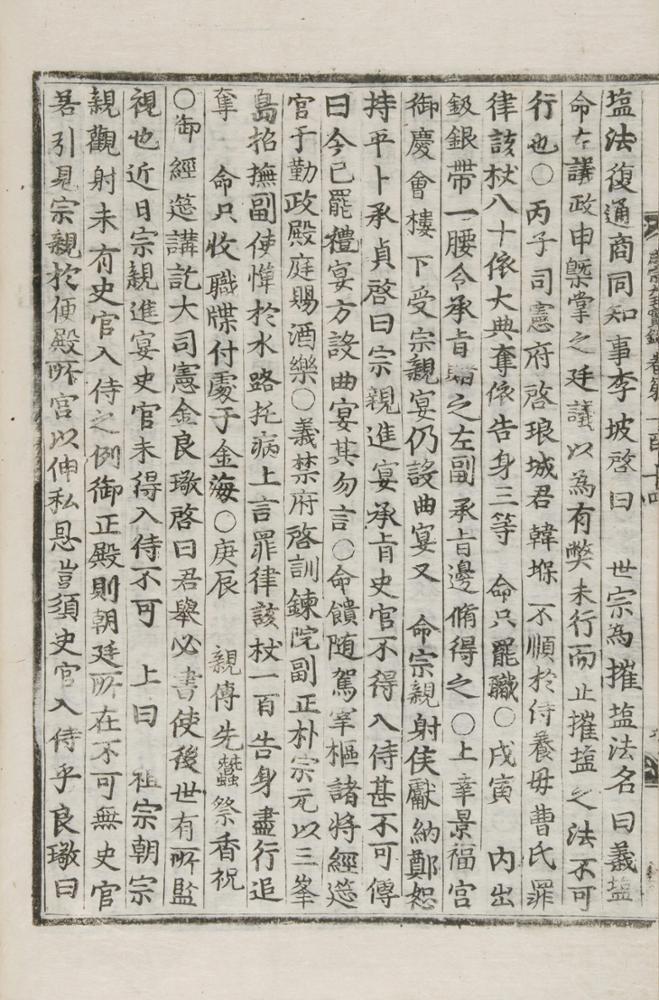 塩法復通商同知事李坡啓曰　世宗為搉塩法名曰義塩
命左議政申槩掌之廷議以為有弊未行而止搉塩之法不可
行也○丙子司憲府啓琅城君韓堢不順於侍養母曹氏罪
律該杖八十依大典奪依告身三等　命只罷職○戊寅　內出
鈒銀帶一腰令承旨賭之左副承旨邊脩得之○上幸景福宮
御慶會樓下受宗親宴仍設曲宴又　命宗親射侯獻納鄭恕
持平卜承貞啓曰宗親進宴承旨史官不得入侍甚不可傳
曰今已罷禮宴方設曲宴其勿言○命饋随駕宰樞諸將經筵
官于勤政殿庭賜酒樂○義禁府啓訓鍊院副正朴宗元以三峯
島招撫副使憚於水路托病上言罪律該杖一百告身盡行追
奪　命只收職牒付處于金海○庚辰　親傳先蠶祭香祝
○御經筵講訖大司憲金良璥啓曰君舉必書使後世有所監
視也近日宗親進宴史官未得入侍不可　上曰　祖宗朝宗
親觀射未有史官入侍之例御正殿則朝廷所在不可無史官
若引見宗親於便殿所宮以伸私恩豈須史官入侍乎良璥曰